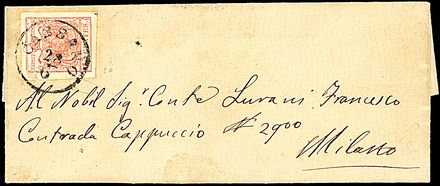 CASSANO
24
6
Al Nobil Sig.r Conte Lurani Francesco
Contrada Cappuccio N° 2900
Milano